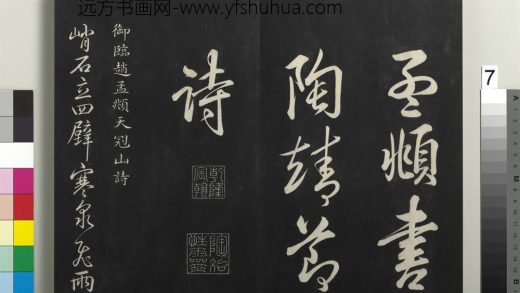 远方书画网-www.yfshuhua.com
孟頫書
陶靖節
詩
乾隆宸翰
陶冶性靈
御臨趙孟頫天冠山詩
峭石立四壁寒泉飛雨
7